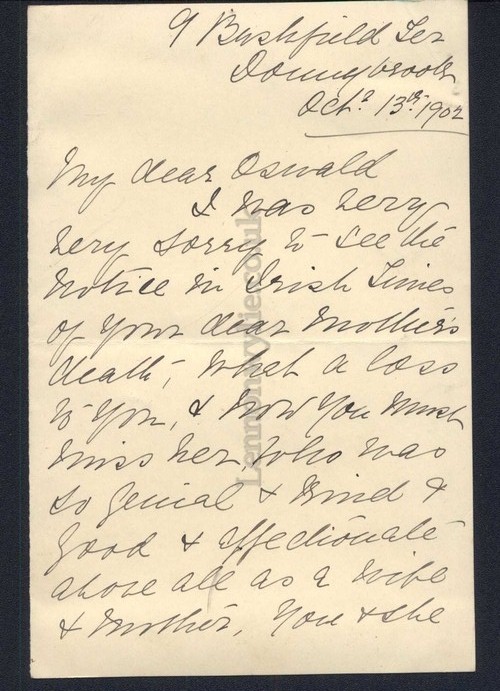 9 Bushfield Ter
Donnybrook
Octr 13th 1902
My dear Oswald
I was very
very sorry to see the
notice in Irish Times
of your dear Mother's
death, what a loss
to you, & how you must
miss her, who was
so genial & kind &
good & affectionate
above all as a wife
& Mother. You & she
Lennonwylie.co.uk